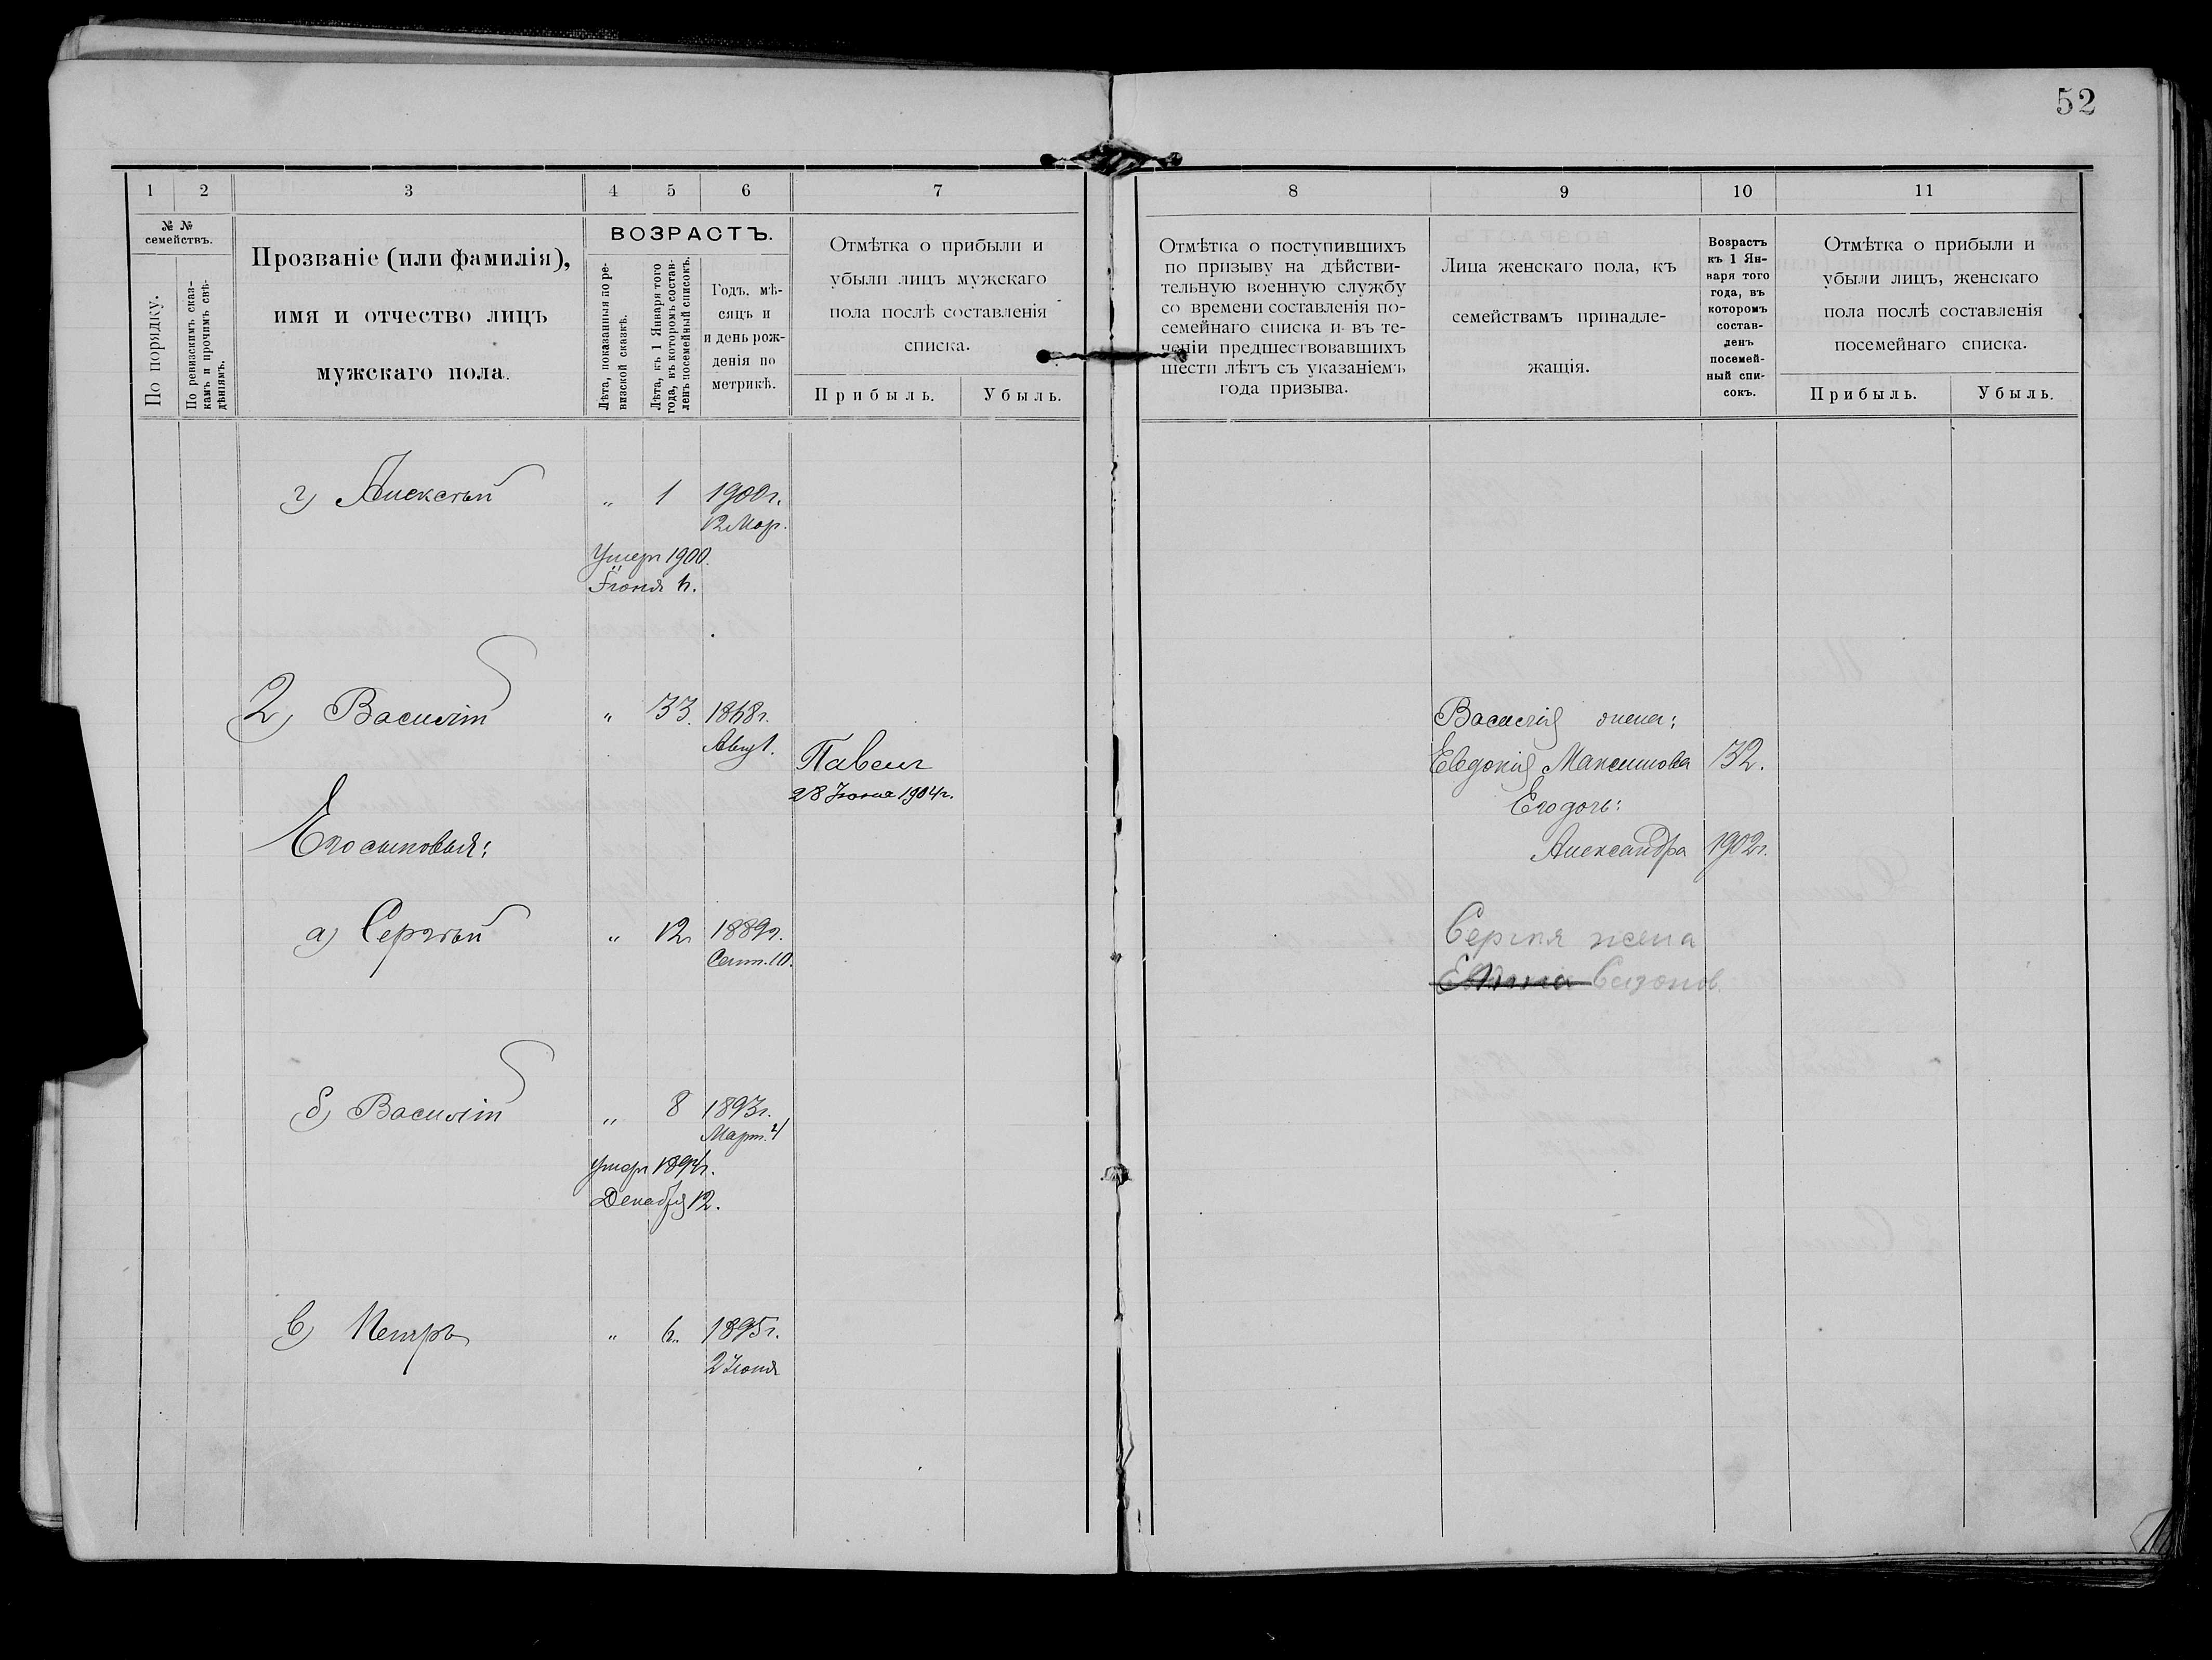 52
1
2
3
4
5
6
7
8
9
10
11
№ №
семействъ.
По порядку.
По ревизскимъ сказ-
камъ и прочимъ свѣ-
дѣніямъ.
Прозваніе (или фамилія),
имя и отчество лицъ
мужскаго пола.
ВОЗРАСТЪ.
Лѣта, показанныя по ре-
визской сказкѣ.
Лѣта, къ 1 Января того
года, въ которомъ состав-
ленъ посемейный списокъ.
Годъ, мѣ-
сяцъ и
и день рож-
денія по
метрикѣ.
Отмѣтка о прибыли и
убыли лицъ мужскаго
пола послѣ составленія
списка.
Прибыль.
Убыль.
Отмѣтка о поступившихъ
по призыву на дѣйстви-
тельную военную службу
со времени составленія по-
семейнаго списка и въ те-
ченіи предшествовавшихъ
шести лѣтъ съ указаніемъ
года призыва.
Лица женскаго пола, къ
семействамъ принадле-
жащія.
Возрастъ
къ 1 Ян-
варя того
года, въ
которомъ
состав-
ленъ
посемей-
ный спи-
сокъ.
Отмѣтка о прибыли и
убыли лицъ, женскаго
пола послѣ составленія
посемейнаго списка.
Прибыль.
Убыль.
г) Алексѣй " 1 1900г.
12 Мар.
Умеръ 1900.
Іюня
2) Василій " 33. 1868г.
Авг. 1.
Павелъ
28 Іюня 1904г.
Его сыновья:
а) Сергѣй " 12 1889г.
Сент. 10.
б) Василій " 8 1893г.
Март. 4
умеръ 1894г.
Декабря 12.
в) Петръ " 6.. 1895г.
2 Іюня
Василія жена:
Евдокія Максимова 32.
Его дочь:
Александра 1902г.
Сергѣя жена
Сазонов.